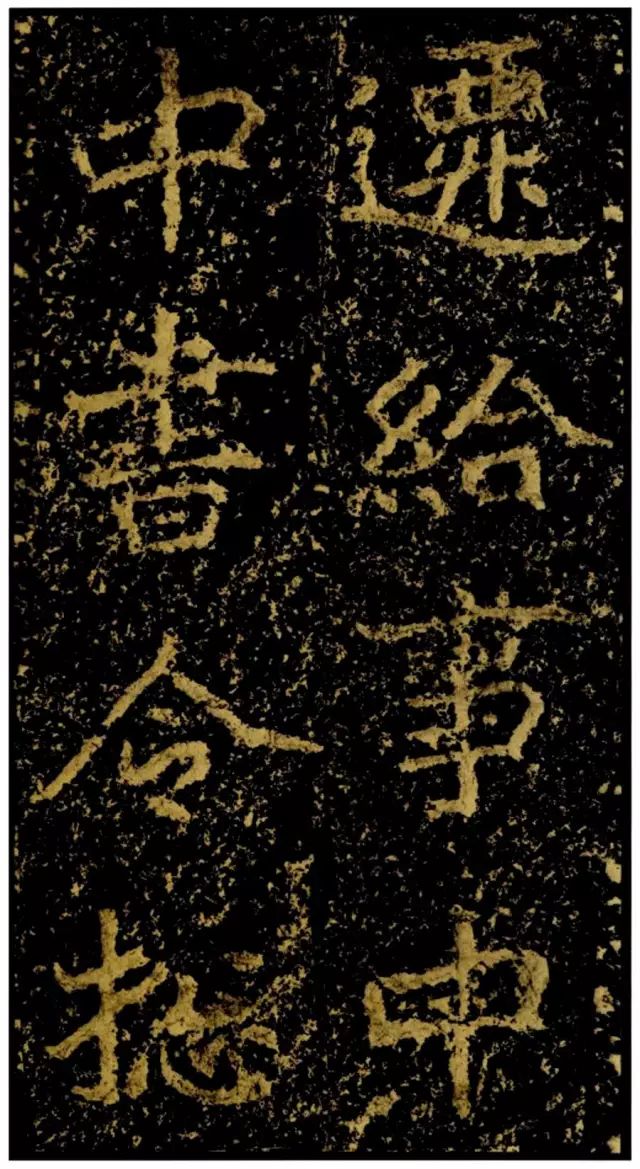 遷給事中
中書令揔